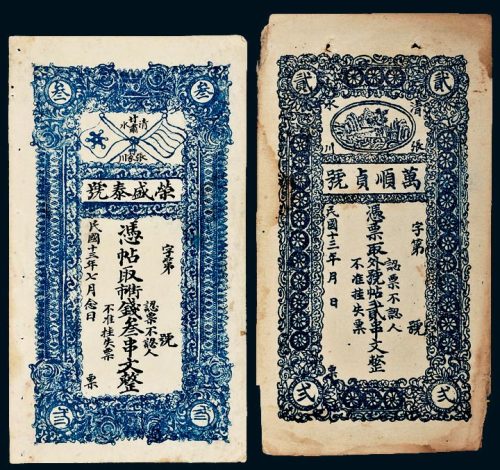 叁 叁
甘肅
清水
張家川
榮盛泰號
字第 號
憑帖取錢叁串文整
認票不認人
不准挂失票
民國十三年七月念日 票
弎 弎
貳 貳
清水
張川
萬順貞號
字第 號
憑票取外號帖貳串文整
認票不認人
不准挂失票
民國十三年 月 日 票
弍 弍